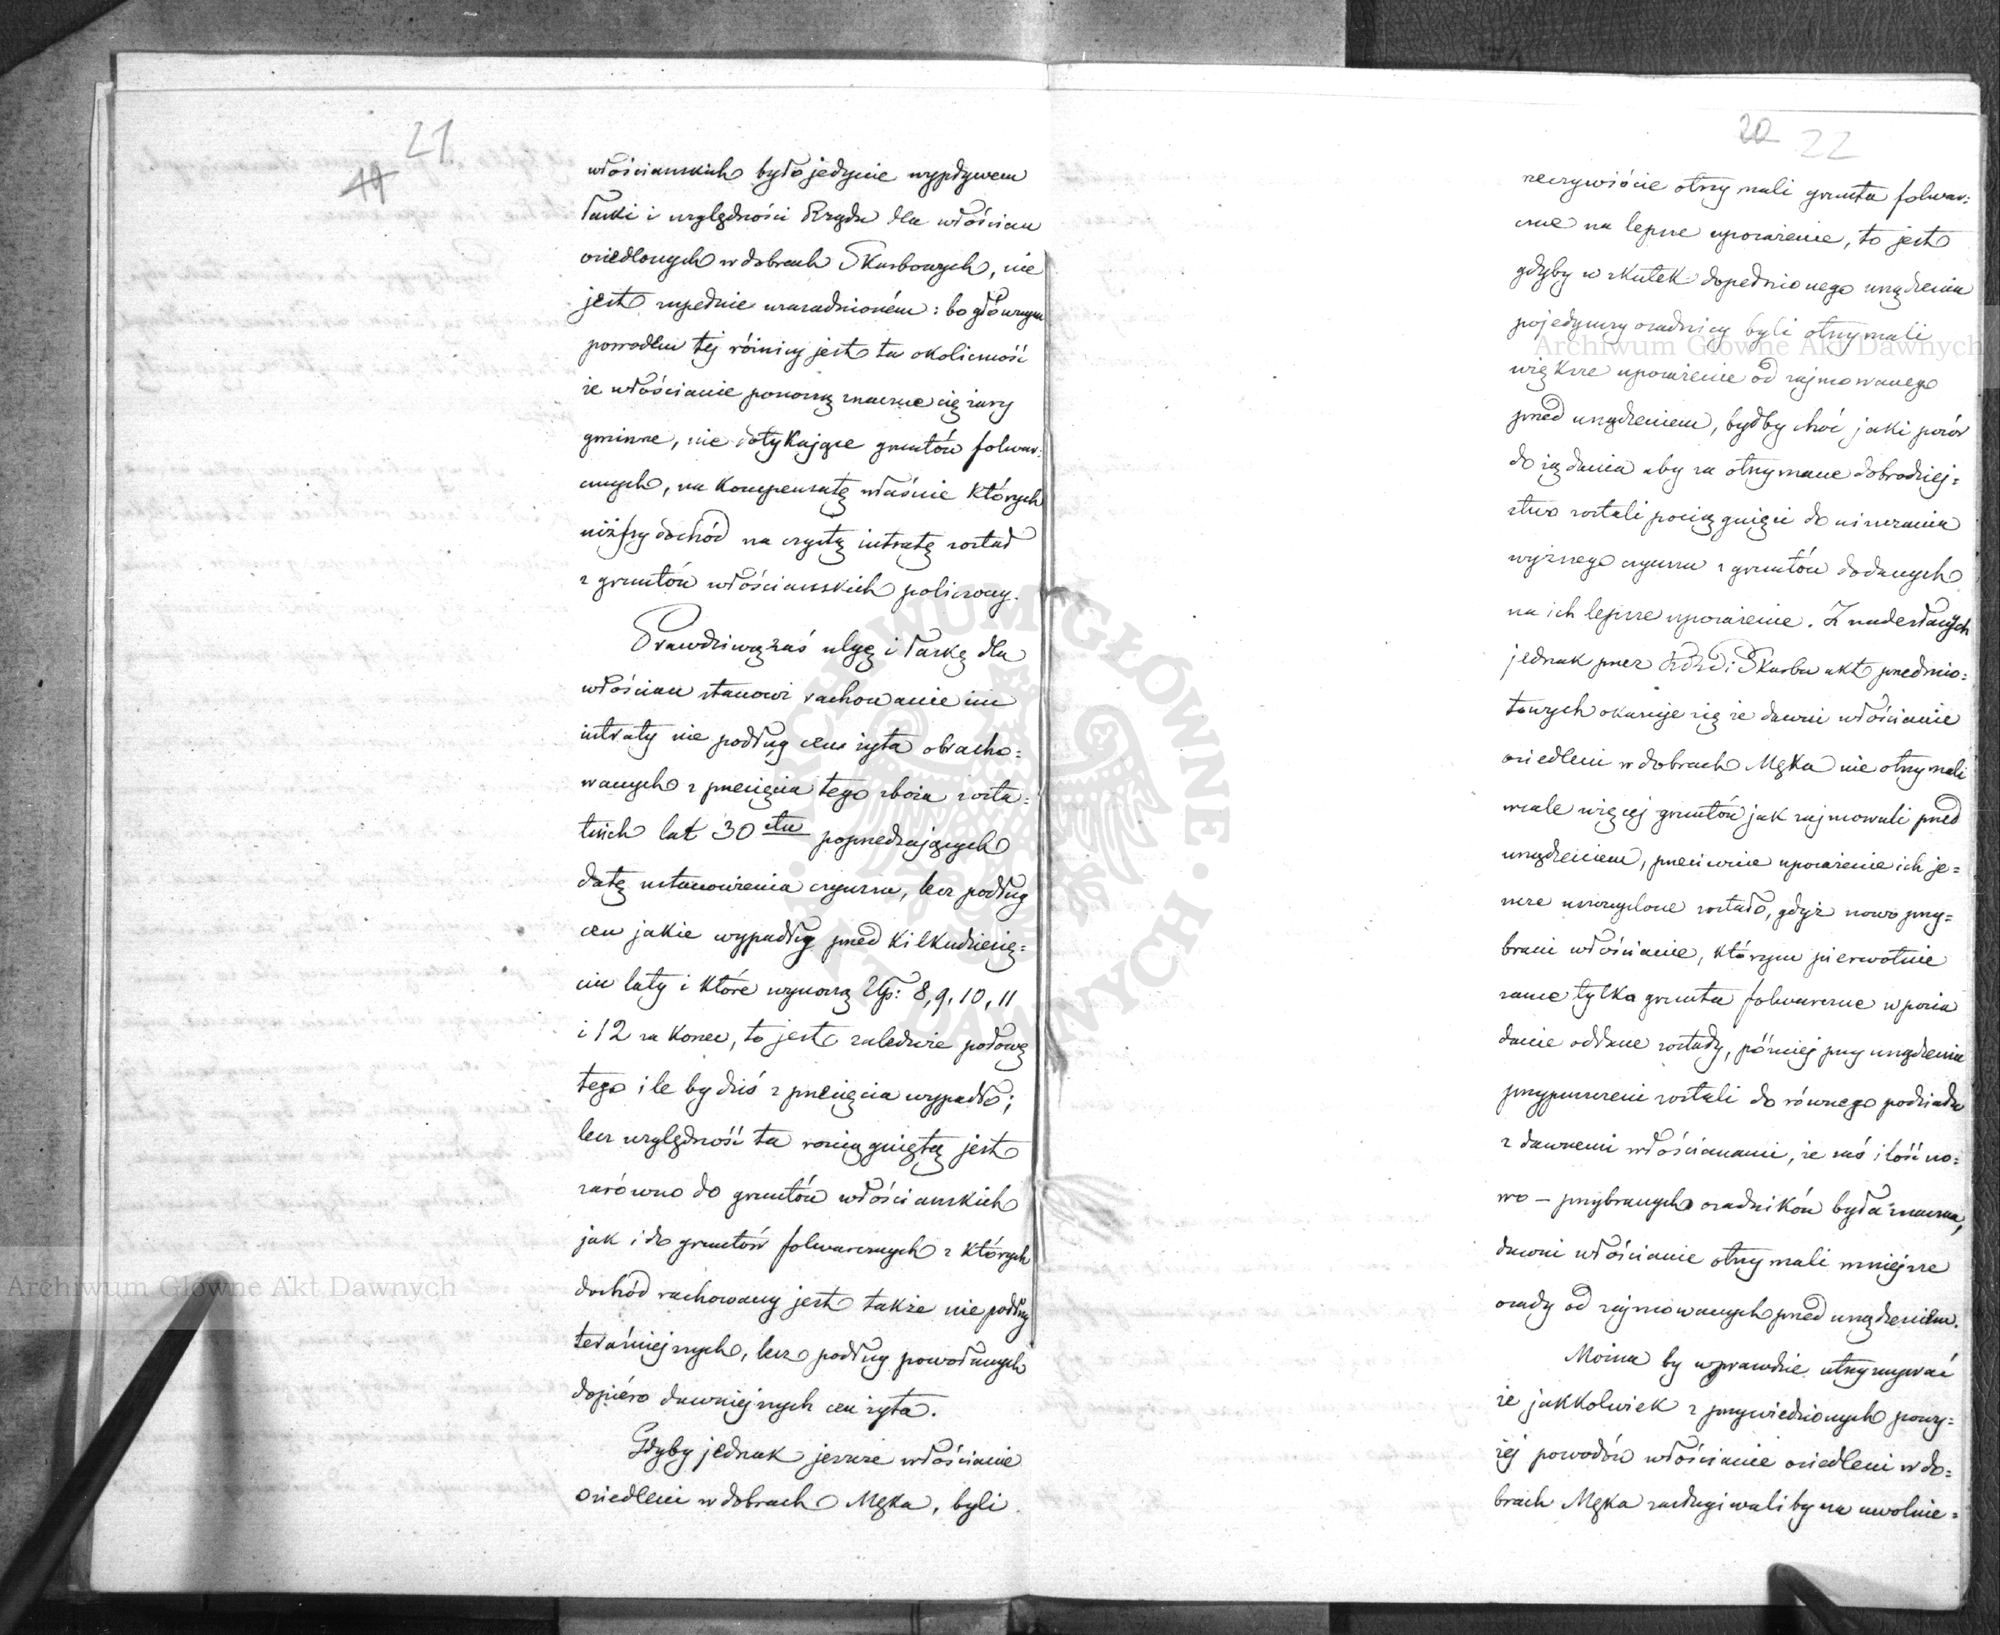 21.
19
włościańskich było jedynie wypływem
łaski i względności Rządu dla włościan
osiedlonych w dobrach Skarbowych, nie
jest zupełnie uzasadnioném: bo głównym
powodem téj różnicy jest ta okoliczność
że włościanie ponoszą znaczne ciężary
gminne, nie dotykające gruntów folwar=
cznych, na kompensatę właśnie których
niższy dochód na czystą intratę został
z gruntów włościańskich policzony.
Prawdziwą zaś ulgę i łaskę dla
włościan stanowi rachowanie im
intraty nie podług cen żyta obracho=
wanych z przecięcia tego zboża z osta=
tnich lat 30stu poprzedzających
datę ustanowienia czynszu, lecz podług
cen jakie wypadły przed kilkudziesię=
ciu laty i które wynoszą Złp: 8, 9, 10, 11
i 12 za korzec, to jest zaledwie połowę
tego ile by dziś z przecięcia wypadło;
lecz względność ta rozciągniętą jest
zarówno do gruntów włościańskich
jak i do gruntów folwarcznych z których
dochód rachowany jest także nie podług
teraźniejszych, lecz podług powołanych
dopiéro dawniejszych cen żyta.
Gdyby jednak jeszcze włościanie
osiedleni w dobrach Męka, byli
20 22
rzeczywiście otrzymali grunta folwar=
czne na lepsze uposażenie, to jest
gdyby w skutek dopełnionego urządzenia
pojedynczy osadnicy byli otrzymali
większe uposażenie od zajmowanego
przed urządzeniem, byłby choć jaki pozór
do żądania aby za otrzymane dobrodziej=
stwo zostali pociągnięci do uiszczania
wyższego czynszu z gruntów dodanych
na ich lepsze uposażenie. Z nadesłanych
jednak przez i Skarbu akt przedmio=
towych okazuje się że dawni włościanie
osiedleni w dobrach Męka nie otrzymali
wcale więcej gruntów jak zajmowali przed
urządzeniem, przeciwnie uposażenie ich je=
szcze uszczuplone zostało, gdyż nowo przy=
brani włościanie, którym pierwotnie
same tylko grunta folwarczne w posia
danie oddane zostały, później przy urządzeniu
przypuszczeni zostali do równego podziału
z dawnemi włościanami, że zaś ilość no=
wo – przybranych osadników była znaczna,
dawni włościanie otrzymali mniejsze
osady od zajmowanych przed urządzeniem.
Można by wprawdzie utrzymywać
że jakkolwiek z przywiedzionych powy=
żéj powodów włościanie osiedleni w do=
brach Męka zasługiwaliby na uwolnie=
Archiwum Główne Akt Dawnych
Archiwum Główne Akt Dawnych
ARCHIWUM GŁÓWNE AKT DAWNYCH